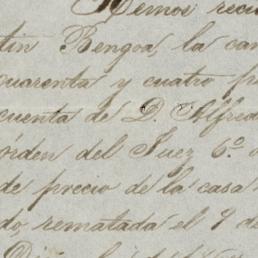 Hemos reci
tin Bengoa, la can
cuarenta y cuatro p
cuenta de D. Alfredo
órden del Juez 6.º
de precio de la casa
do, rematada el 9 de